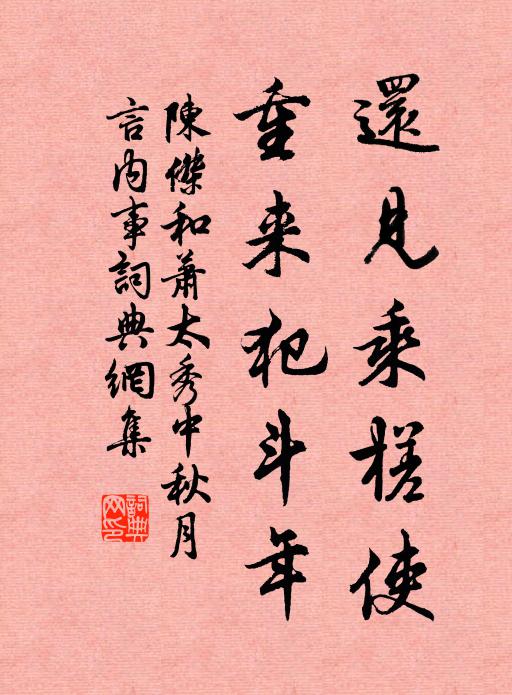 還見乘槎使
重来犯斗年
陳傑和蕭太秀中秋月
言内事詞典網集
詞典网印